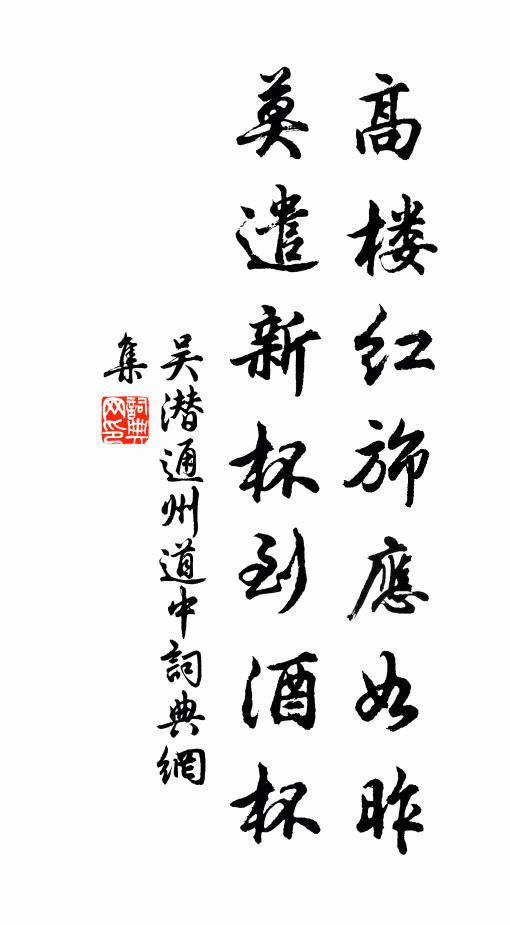 高楼红旆應如昨
莫遣新杯到酒杯
吴潜通州道中詞典網
集
詞典网印